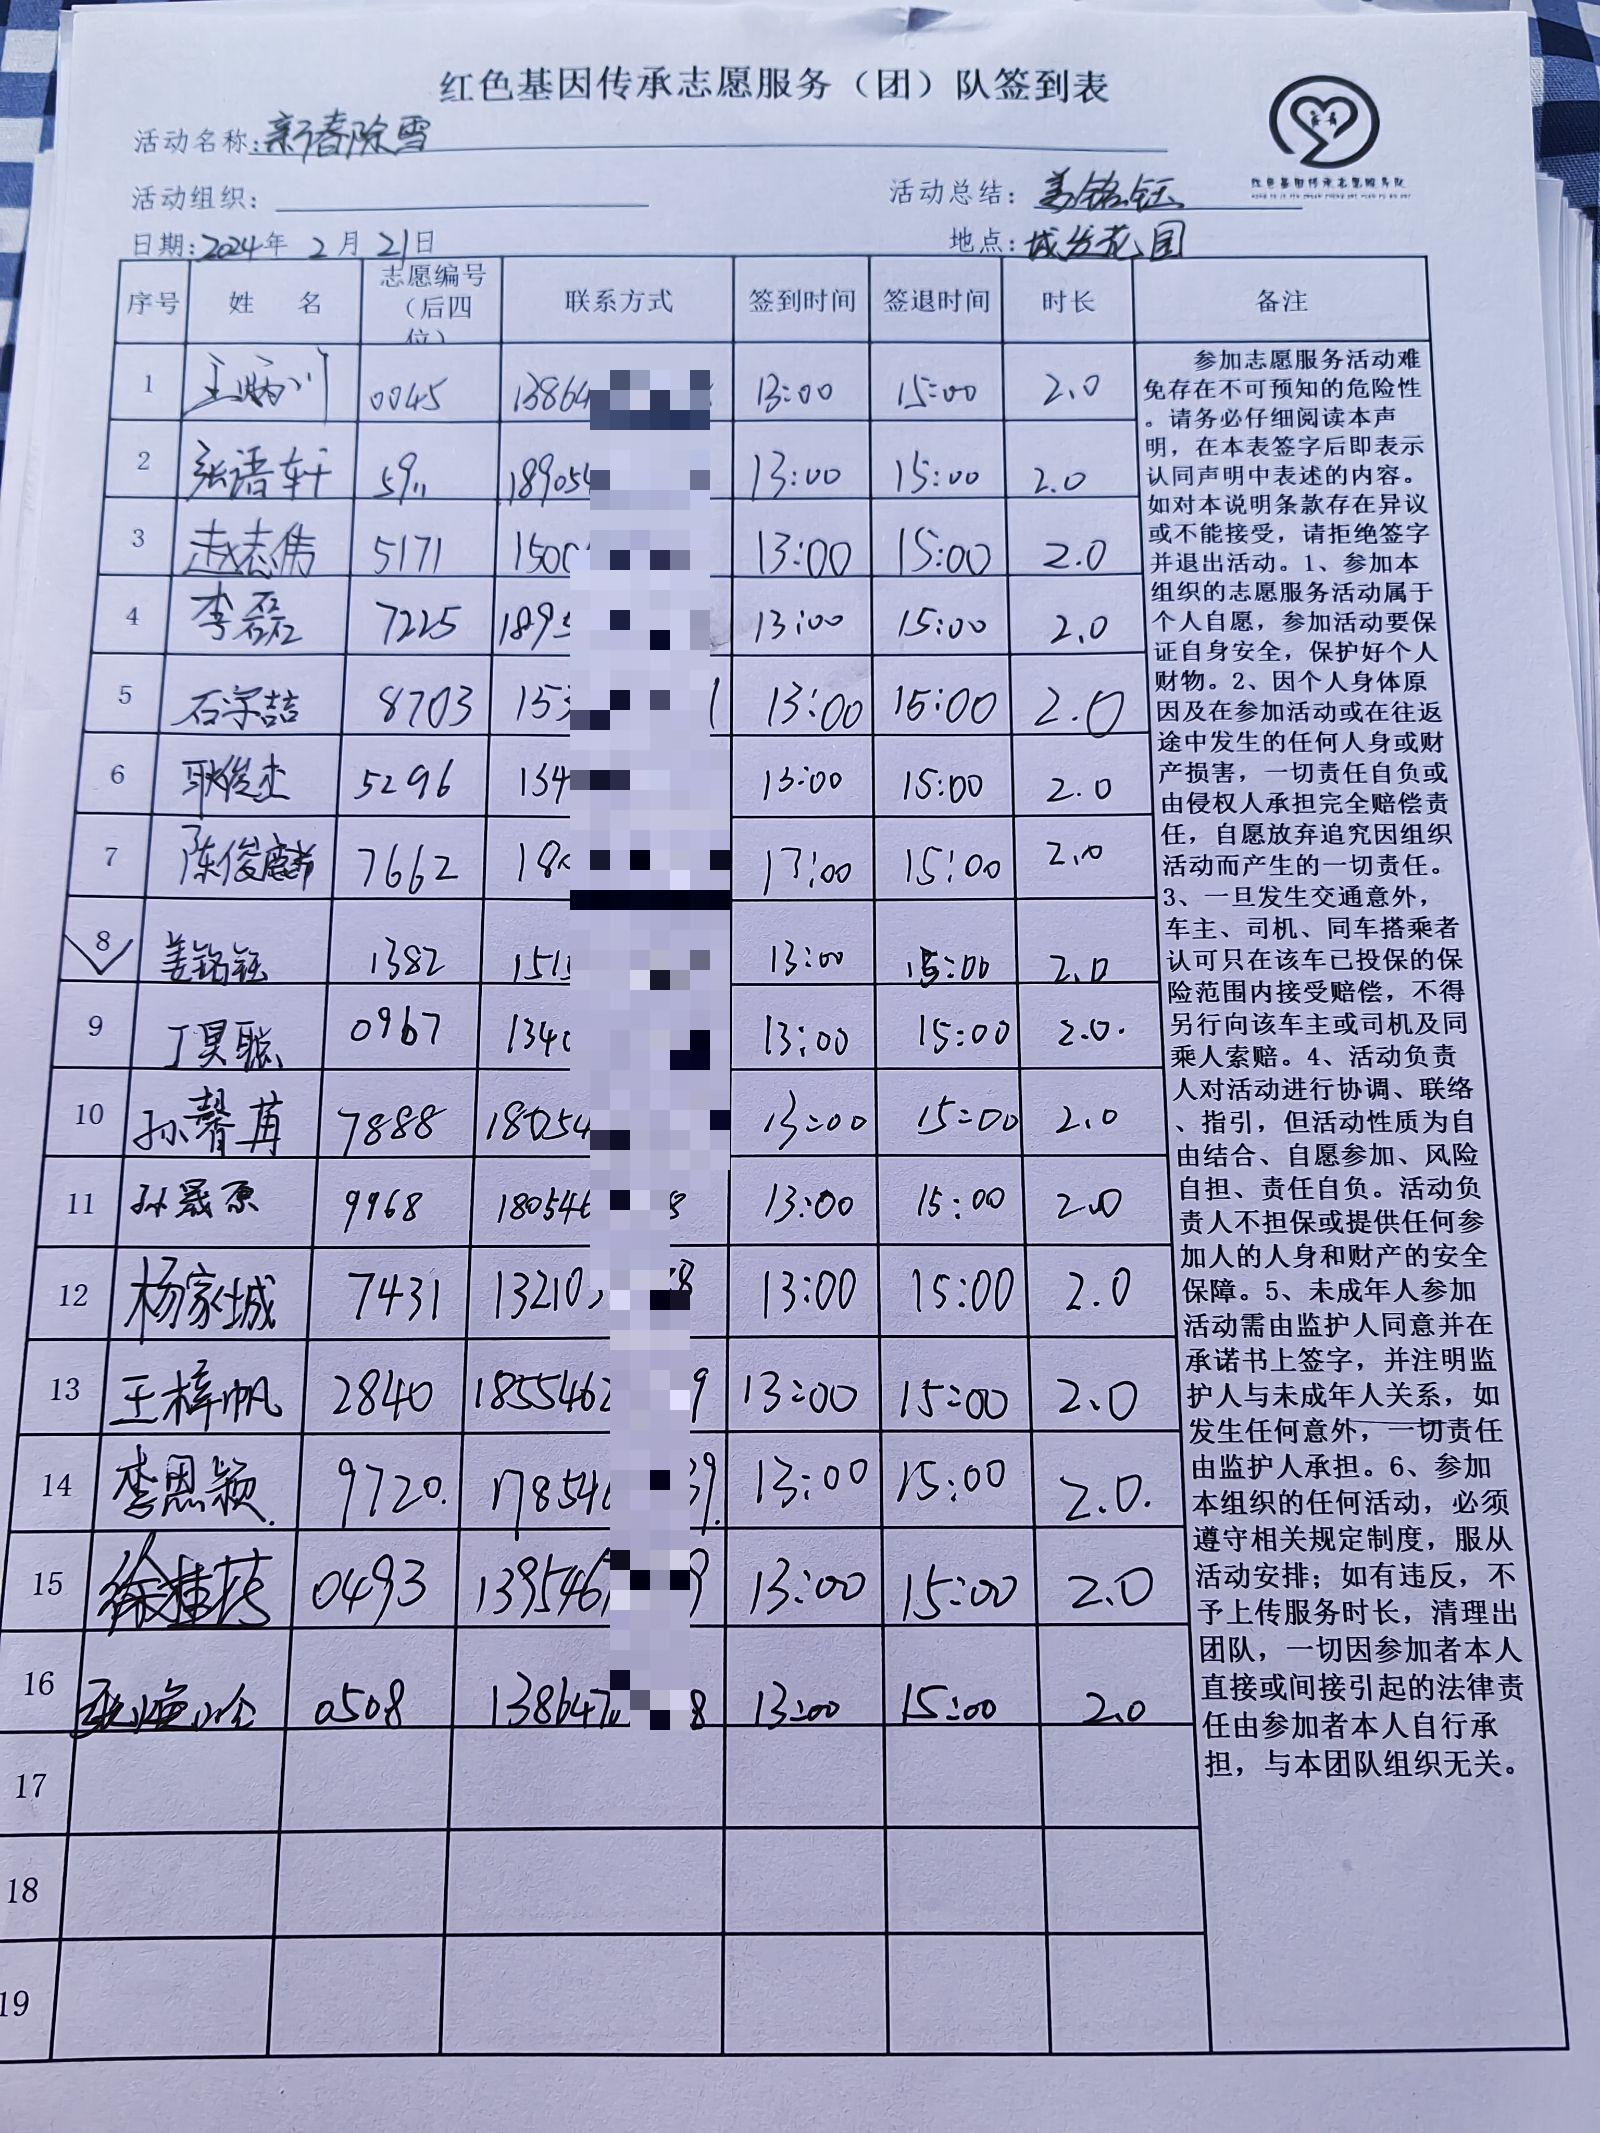 红色基因传承志愿服务（团）队签到表
活动名称：新春除雪
活动组织：
活动总结：姜铭钰
日期：2024年 2月 21日
地点：城发花园
序号 姓 名 志愿编号（后四位） 联系方式 签到时间 签退时间 时长 备注
1 0045 13864 13:00 15:00 2.0
2 张语轩 5911 189054 13:00 15:00 2.0
3 赵志伟 5171 150 13:00 15:00 2.0
4 李磊 7225 1895 13:00 15:00 2.0
5 石学喆 8703 153 1 13:00 15:00 2.0
6 耿俊杰 5296 134 13:00 15:00 2.0
7 陈俊麟 7662 18 13:00 15:00 2.0
8 姜铭钰 1382 151 13:00 15:00 2.0
9 丁昊聪 0967 134 13:00 15:00 2.0.
10 孙馨苒 7888 18054 13:00 15:00 2.0
11 孙晟原 9968 180546 8 13:00 15:00 2.0
12 杨家城 7431 13210 8 13:00 15:00 2.0
13 王梓帆 2840 1855462 9 13:00 15:00 2.0
14 李恩颖. 9720. 178546 39. 13:00 15:00 2.0.
15 0493 139546 9 13:00 15:00 2.0
16 0508 138647 8 13:00 15:00 2.0
17
18
19
参加志愿服务活动难
免存在不可预知的危险性
。请务必仔细阅读本声
明，在本表签字后即表示
认同声明中表述的内容。
如对本说明条款存在异议
或不能接受，请拒绝签字
并退出活动。1、参加本
组织的志愿服务活动属于
个人自愿，参加活动要保
证自身安全，保护好个人
财物。2、因个人身体原
因及在参加活动或在往返
途中发生的任何人身或财
产损害，一切责任自负或
由侵权人承担完全赔偿责
任，自愿放弃追究因组织
活动而产生的一切责任。
3、一旦发生交通意外，
车主、司机、同车搭乘者
认可只在该车已投保的保
险范围内接受赔偿，不得
另行向该车主或司机及同
乘人索赔。4、活动负责
人对活动进行协调、联络
、指引，但活动性质为自
由结合、自愿参加、风险
自担、责任自负。活动负
责人不担保或提供任何参
加人的人身和财产的安全
保障。5、未成年人参加
活动需由监护人同意并在
承诺书上签字，并注明监
护人与未成年人关系，如
发生任何意外，一切责任
由监护人承担。6、参加
本组织的任何活动，必须
遵守相关规定制度，服从
活动安排；如有违反，不
予上传服务时长，清理出
团队，一切因参加者本人
直接或间接引起的法律责
任由参加者本人自行承
担，与本团队组织无关。